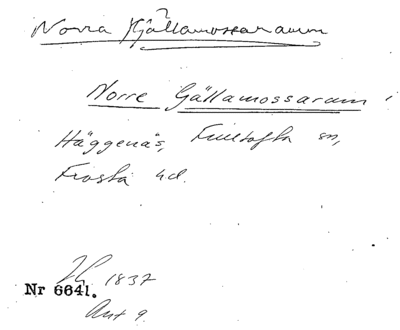 Norra Kjällamossaraum
Norre Gällamossaram
Häggenäs, Fulltofta sn,
Frosta hd.
1837
Nr 6641.
Akt 9